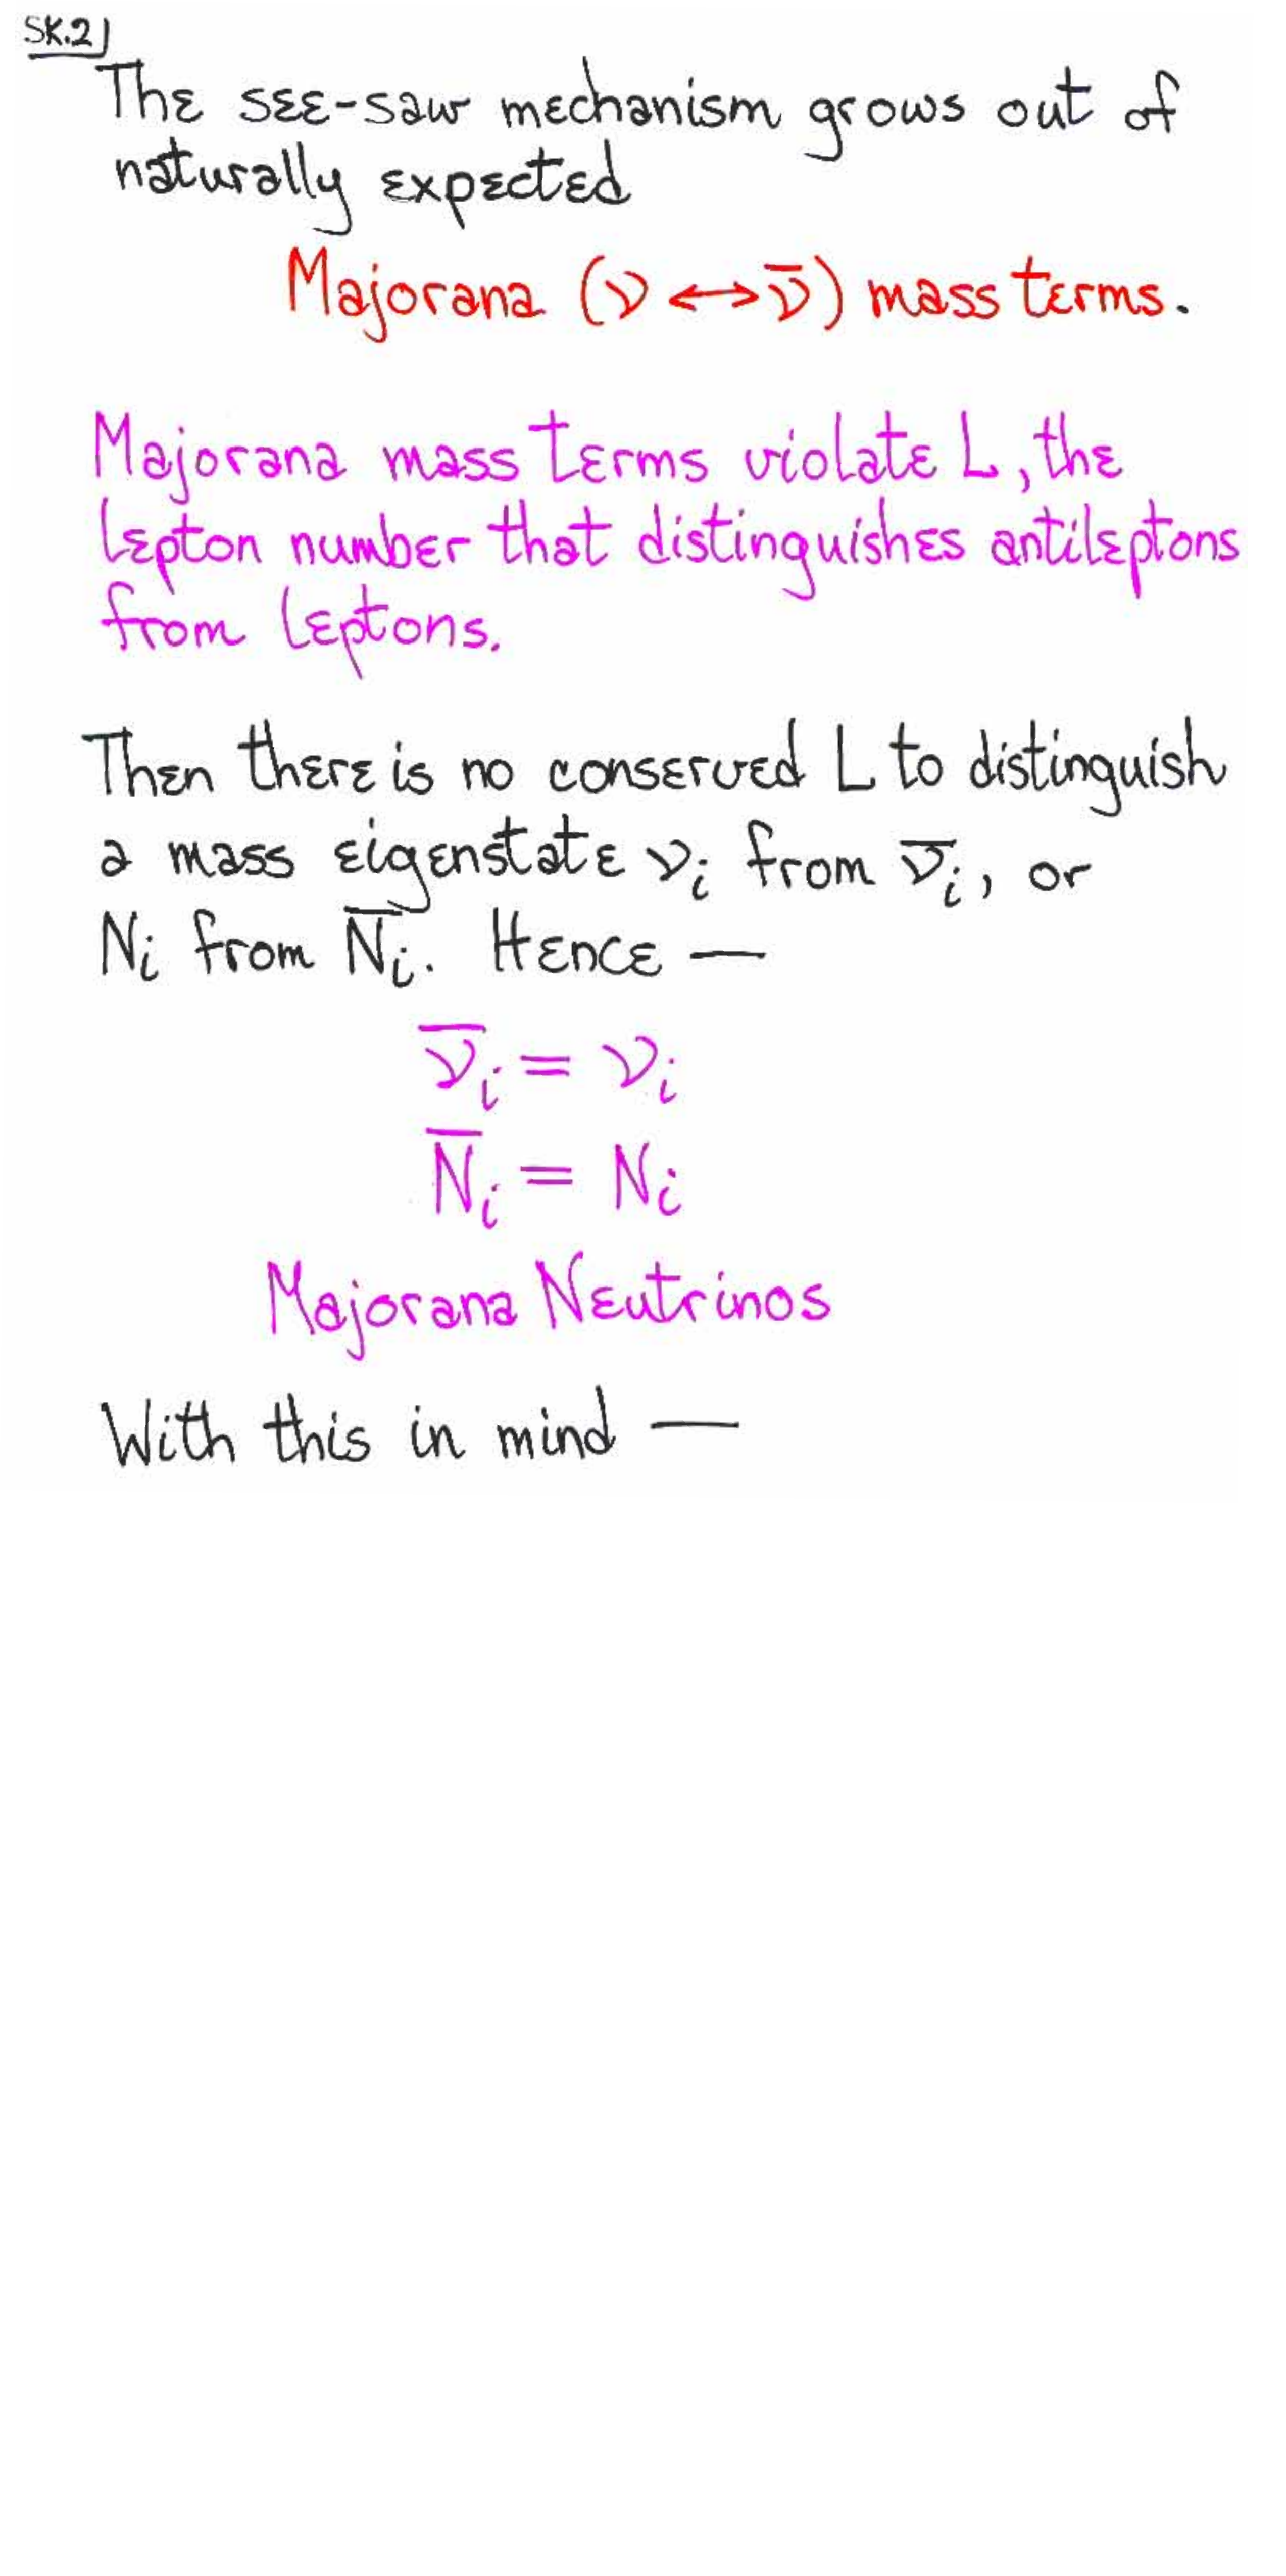 SK.2
The see-saw mechanism grows out of
naturally expected
Majorana (ν ↔ ν̅) mass terms.
Majorana mass terms violate L, the
lepton number that distinguishes antileptons
from leptons.
Then there is no conserved L to distinguish
a mass eigenstate νᵢ from ν̅ᵢ, or
Nᵢ from N̅ᵢ. Hence —
ν̅ᵢ = νᵢ
N̅ᵢ = Nᵢ
Majorana Neutrinos
With this in mind —